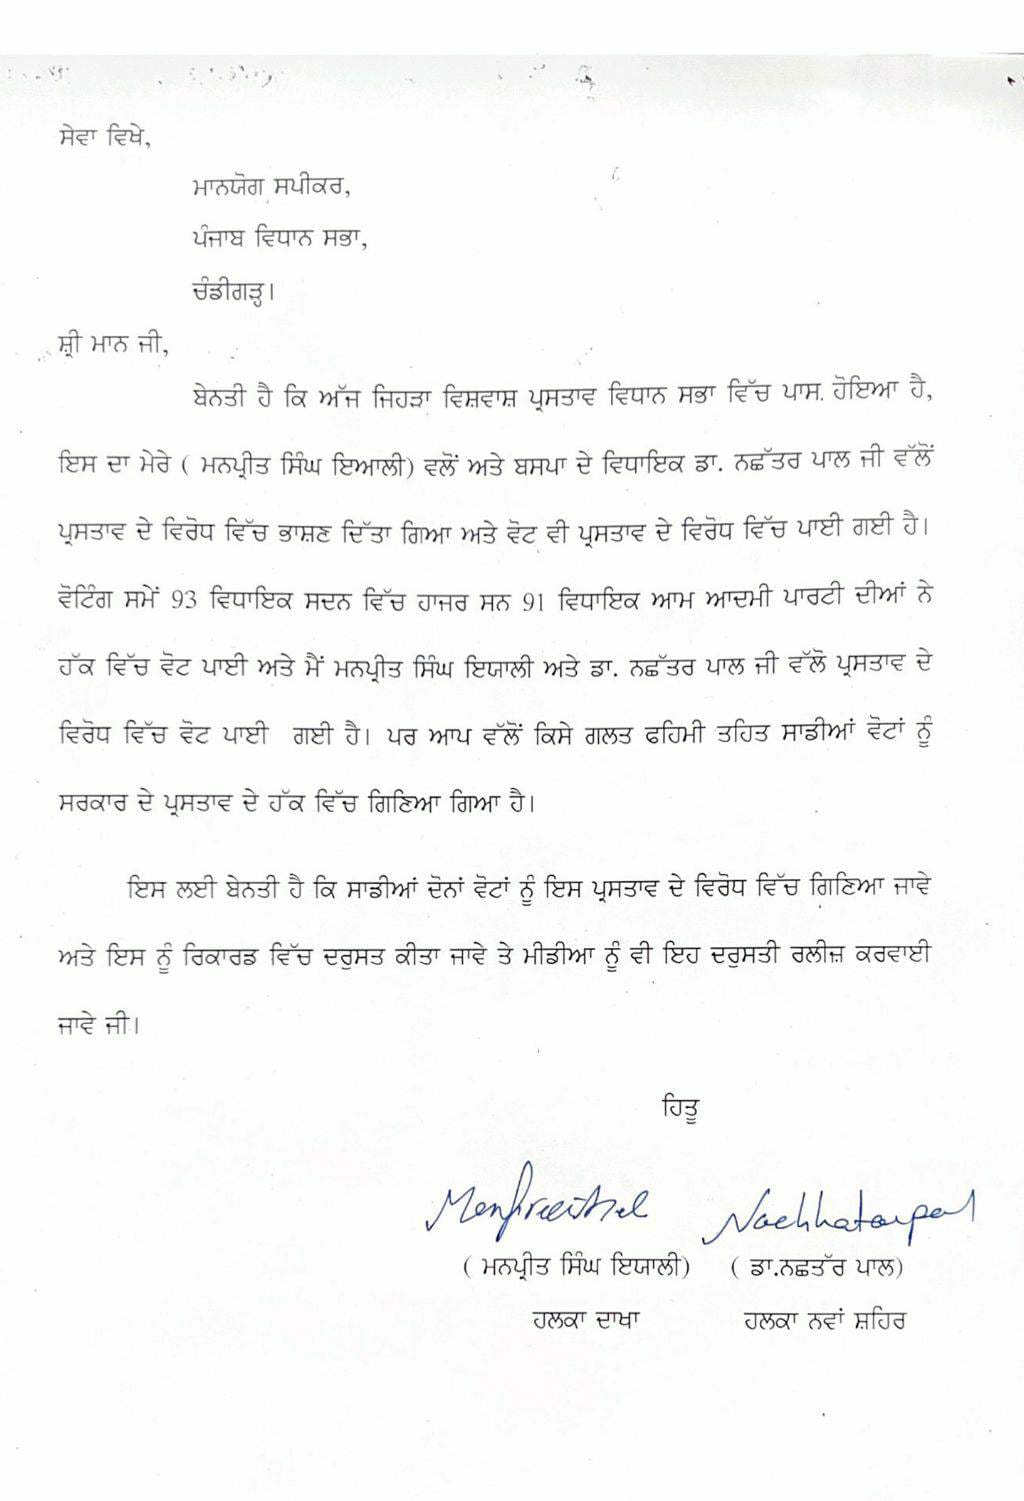 ਸੇਵਾ ਵਿਖੇ,
ਮਾਨਯੋਗ ਸਪੀਕਰ,
ਪੰਜਾਬ ਵਿਧਾਨ ਸਭਾ,
ਚੰਡੀਗੜ੍ਹ।
ਸ਼੍ਰੀ ਮਾਨ ਜੀ,
ਬੇਨਤੀ ਹੈ ਕਿ ਅੱਜ ਜਿਹੜਾ ਵਿਸ਼ਵਾਸ਼ ਪ੍ਰਸਤਾਵ ਵਿਧਾਨ ਸਭਾ ਵਿੱਚ ਪਾਸ ਹੋਇਆ ਹੈ,
ਇਸ ਦਾ ਮੇਰੇ ( ਮਨਪ੍ਰੀਤ ਸਿੰਘ ਇਆਲੀ) ਵਲੋਂ ਅਤੇ ਬਸਪਾ ਦੇ ਵਿਧਾਇਕ ਡਾ. ਨਛੱਤਰ ਪਾਲ ਜੀ ਵੱਲੋਂ
ਪ੍ਰਸਤਾਵ ਦੇ ਵਿਰੋਧ ਵਿੱਚ ਭਾਸ਼ਣ ਦਿੱਤਾ ਗਿਆ ਅਤੇ ਵੋਟ ਵੀ ਪ੍ਰਸਤਾਵ ਦੇ ਵਿਰੋਧ ਵਿੱਚ ਪਾਈ ਗਈ ਹੈ।
ਵੋਟਿੰਗ ਸਮੇਂ 93 ਵਿਧਾਇਕ ਸਦਨ ਵਿੱਚ ਹਾਜਰ ਸਨ 91 ਵਿਧਾਇਕ ਆਮ ਆਦਮੀ ਪਾਰਟੀ ਦੀਆਂ ਨੇ
ਹੱਕ ਵਿੱਚ ਵੋਟ ਪਾਈ ਅਤੇ ਮੈਂ ਮਨਪ੍ਰੀਤ ਸਿੰਘ ਇਯਾਲੀ ਅਤੇ ਡਾ. ਨਛੱਤਰ ਪਾਲ ਜੀ ਵੱਲੋ ਪ੍ਰਸਤਾਵ ਦੇ
ਵਿਰੋਧ ਵਿੱਚ ਵੋਟ ਪਾਈ ਗਈ ਹੈ। ਪਰ ਆਪ ਵੱਲੋਂ ਕਿਸੇ ਗਲਤ ਫਹਿਮੀ ਤਹਿਤ ਸਾਡੀਆਂ ਵੋਟਾਂ ਨੂੰ
ਸਰਕਾਰ ਦੇ ਪ੍ਰਸਤਾਵ ਦੇ ਹੱਕ ਵਿੱਚ ਗਿਣਿਆ ਗਿਆ ਹੈ।
ਇਸ ਲਈ ਬੇਨਤੀ ਹੈ ਕਿ ਸਾਡੀਆਂ ਦੋਨਾਂ ਵੋਟਾਂ ਨੂੰ ਇਸ ਪ੍ਰਸਤਾਵ ਦੇ ਵਿਰੋਧ ਵਿੱਚ ਗਿਣਿਆ ਜਾਵੇ
ਅਤੇ ਇਸ ਨੂੰ ਰਿਕਾਰਡ ਵਿੱਚ ਦਰੁਸਤ ਕੀਤਾ ਜਾਵੇ ਤੇ ਮੀਡੀਆ ਨੂੰ ਵੀ ਇਹ ਦਰੁਸਤੀ ਰਲੀਜ਼ ਕਰਵਾਈ
ਜਾਵੇ ਜੀ।
ਹਿਤੂ
Nachhatarpal
( ਮਨਪ੍ਰੀਤ ਸਿੰਘ ਇਯਾਲੀ) ( ਡਾ.ਨਛਤੱਰ ਪਾਲ)
ਹਲਕਾ ਦਾਖਾ ਹਲਕਾ ਨਵਾਂ ਸ਼ਹਿਰ